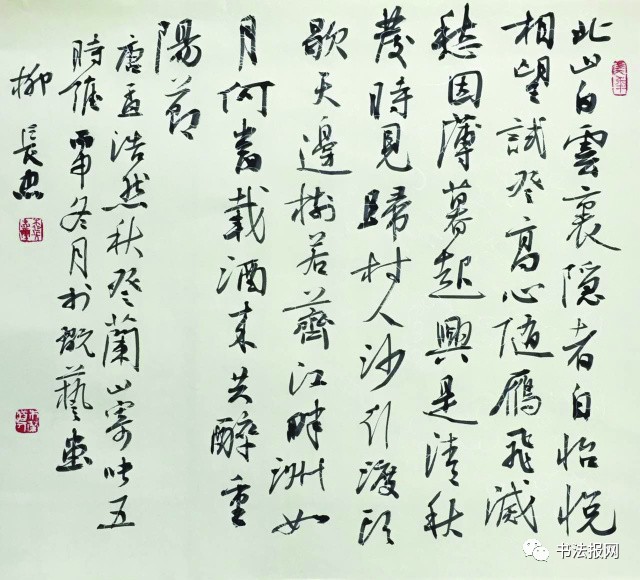 北山白雲裏隱者自怡悅
相望試登高心隨雁飛滅
愁因薄暮起興是清秋
發時見歸村人沙行渡頭
歇天邊樹若薺江畔洲如
月何當載酒來共醉重
陽節
唐孟浩然秋登蘭山寄張五
時維丙申冬月於藝堂
柳長忠
书法报网